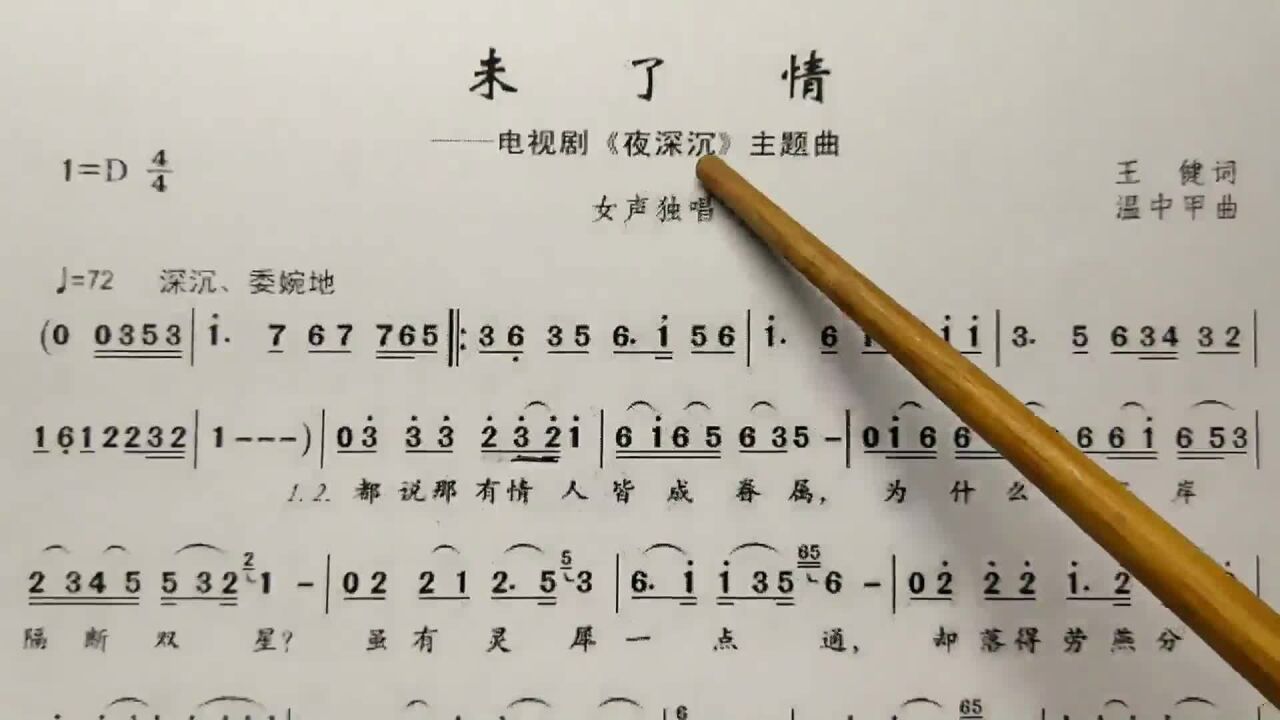 未了情
——电视剧《夜深沉》主题曲
1=D 4/4
王 健词
温中甲曲
女声独唱
♩=72 深沉、委婉地
(0 0353 | i. 7 67 765 ‖: 36 35 6. i 56 | i. 6 i i i | 3. 5 634 32 |
161 2232 | 1 - - - ) | 03 33 2321 | 6165 635 - | 016 6 661 653 |
1.2. 都说那有情人皆成眷属, 为什么 岸
2345 5321 - | 02 21 2. 5 3 | 6. i i35 6 - | 02 22 i. 2
隔断双星? 虽有灵犀一点通, 却落得劳燕分